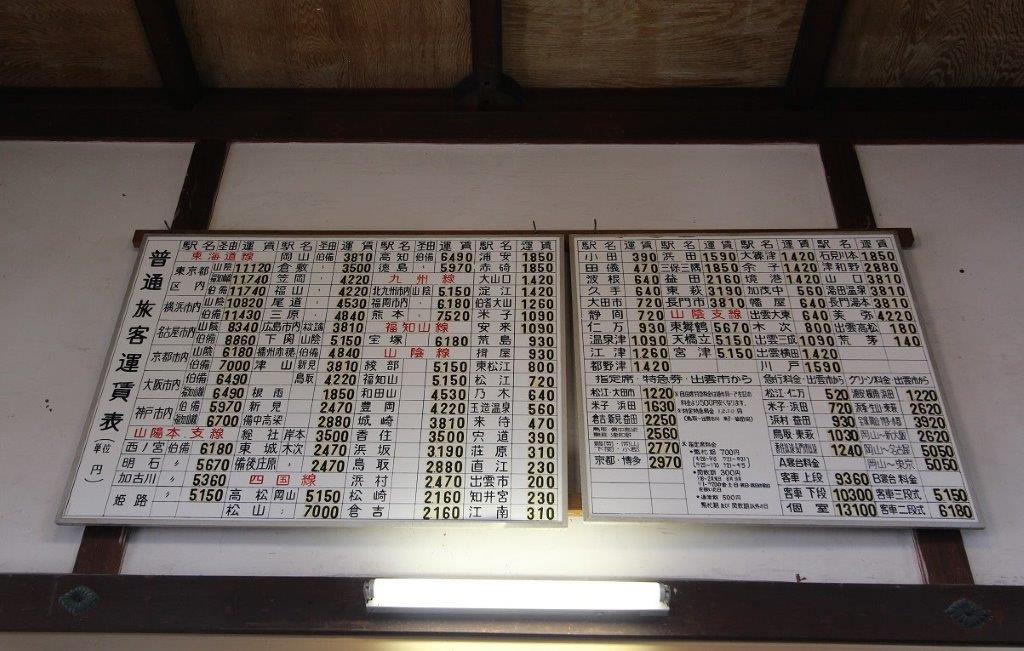 普通旅客運賃表
(単位 円)
駅名 経由 運賃 駅名 経由 運賃 駅名 経由 運賃 駅名 運賃
東海道線 岡山 伯備 3810 高知 伯備 6490 浦安 1850
東京都区内 山陰 11120 倉敷 〃 3500 徳島 〃 5970 赤碕 1850
11740 笠岡 〃 4220 九州線 大山口 1420
伯備 11740 福山 〃 4220 北九州市内 山陰 5150 淀江 1420
横浜市内 山陰 10820 尾道 〃 4530 福岡市内 〃 6180 伯耆大山 1260
伯備 11430 三原 〃 4840 熊本 〃 7520 米子 1090
名古屋市内 山陰 8340 広島市内 3810 福知山線 安来 1090
伯備 8860 下関 山陰 5150 宝塚 6180 荒島 930
京都市内 山陰 6180 播州赤穂 伯備 4840 山陰線 揖屋 930
伯備 7000 津山 新見 3810 綾部 5150 東松江 800
大阪市内 伯備 6490 鳥取 4220 福知山 5150 松江 720
6490 根雨 1850 和田山 4530 乃木 640
神戸市内 伯備 5970 新見 2470 豊岡 4220 玉造温泉 560
6700 備中高梁 2880 城崎 3810 来待 470
山陽本支線 総社 岸本 3500 香住 3500 宍道 390
西ノ宮 伯備 6180 東城 木次 2470 浜坂 3190 荘原 310
明石 〃 5670 備後庄原 〃 2470 鳥取 2880 直江 230
加古川 〃 5360 四国線 浜村 2470 出雲市 200
姫路 〃 5150 高松 岡山 5150 松崎 2160 知井宮 230
松山 〃 7000 倉吉 2160 江南 310
駅名 運賃 駅名 運賃 駅名 運賃 駅名 運賃
小田 390 浜田 1590 大篠津 1420 石見川本 1850
田儀 470 三保三隅 1850 余子 1420 津和野 2880
波根 640 益田 2160 境港 1420 山口 3810
久手 640 東萩 3190 加茂中 560 湯田温泉 3810
大田市 720 長門市 3810 幡屋 640 長門湯本 3810
静間 720 山陰支線 出雲大東 640 美弥 4220
仁万 930 東舞鶴 5670 木次 800 出雲高松 180
温泉津 1090 天橋立 5150 出雲三成 1090 荒茅 140
江津 1260 宮津 5150 出雲横田 1420
都野津 1420 川戸 1590
指定席・特急券・出雲市から
松江・大田市 1220
米子 浜田 1630
倉吉 新見 益田 2250
2560
2770
京都・博多 2970
*指定席料金
*閑散期 300円
*通常期 500円
急行料金・出雲市から
松江・仁万 520
米子・浜田 720
浜村 益田 930
鳥取・東萩 1030
1240
A寝台料金
客車 上段 9360
客車 下段 10300
個室 13100
グリーン料金・出雲市から
1220
2620
3920
岡山〜新大阪 2620
岡山〜名古屋 5050
岡山〜東京 5050
B寝台料金
客車三段式 5150
客車二段式 6180